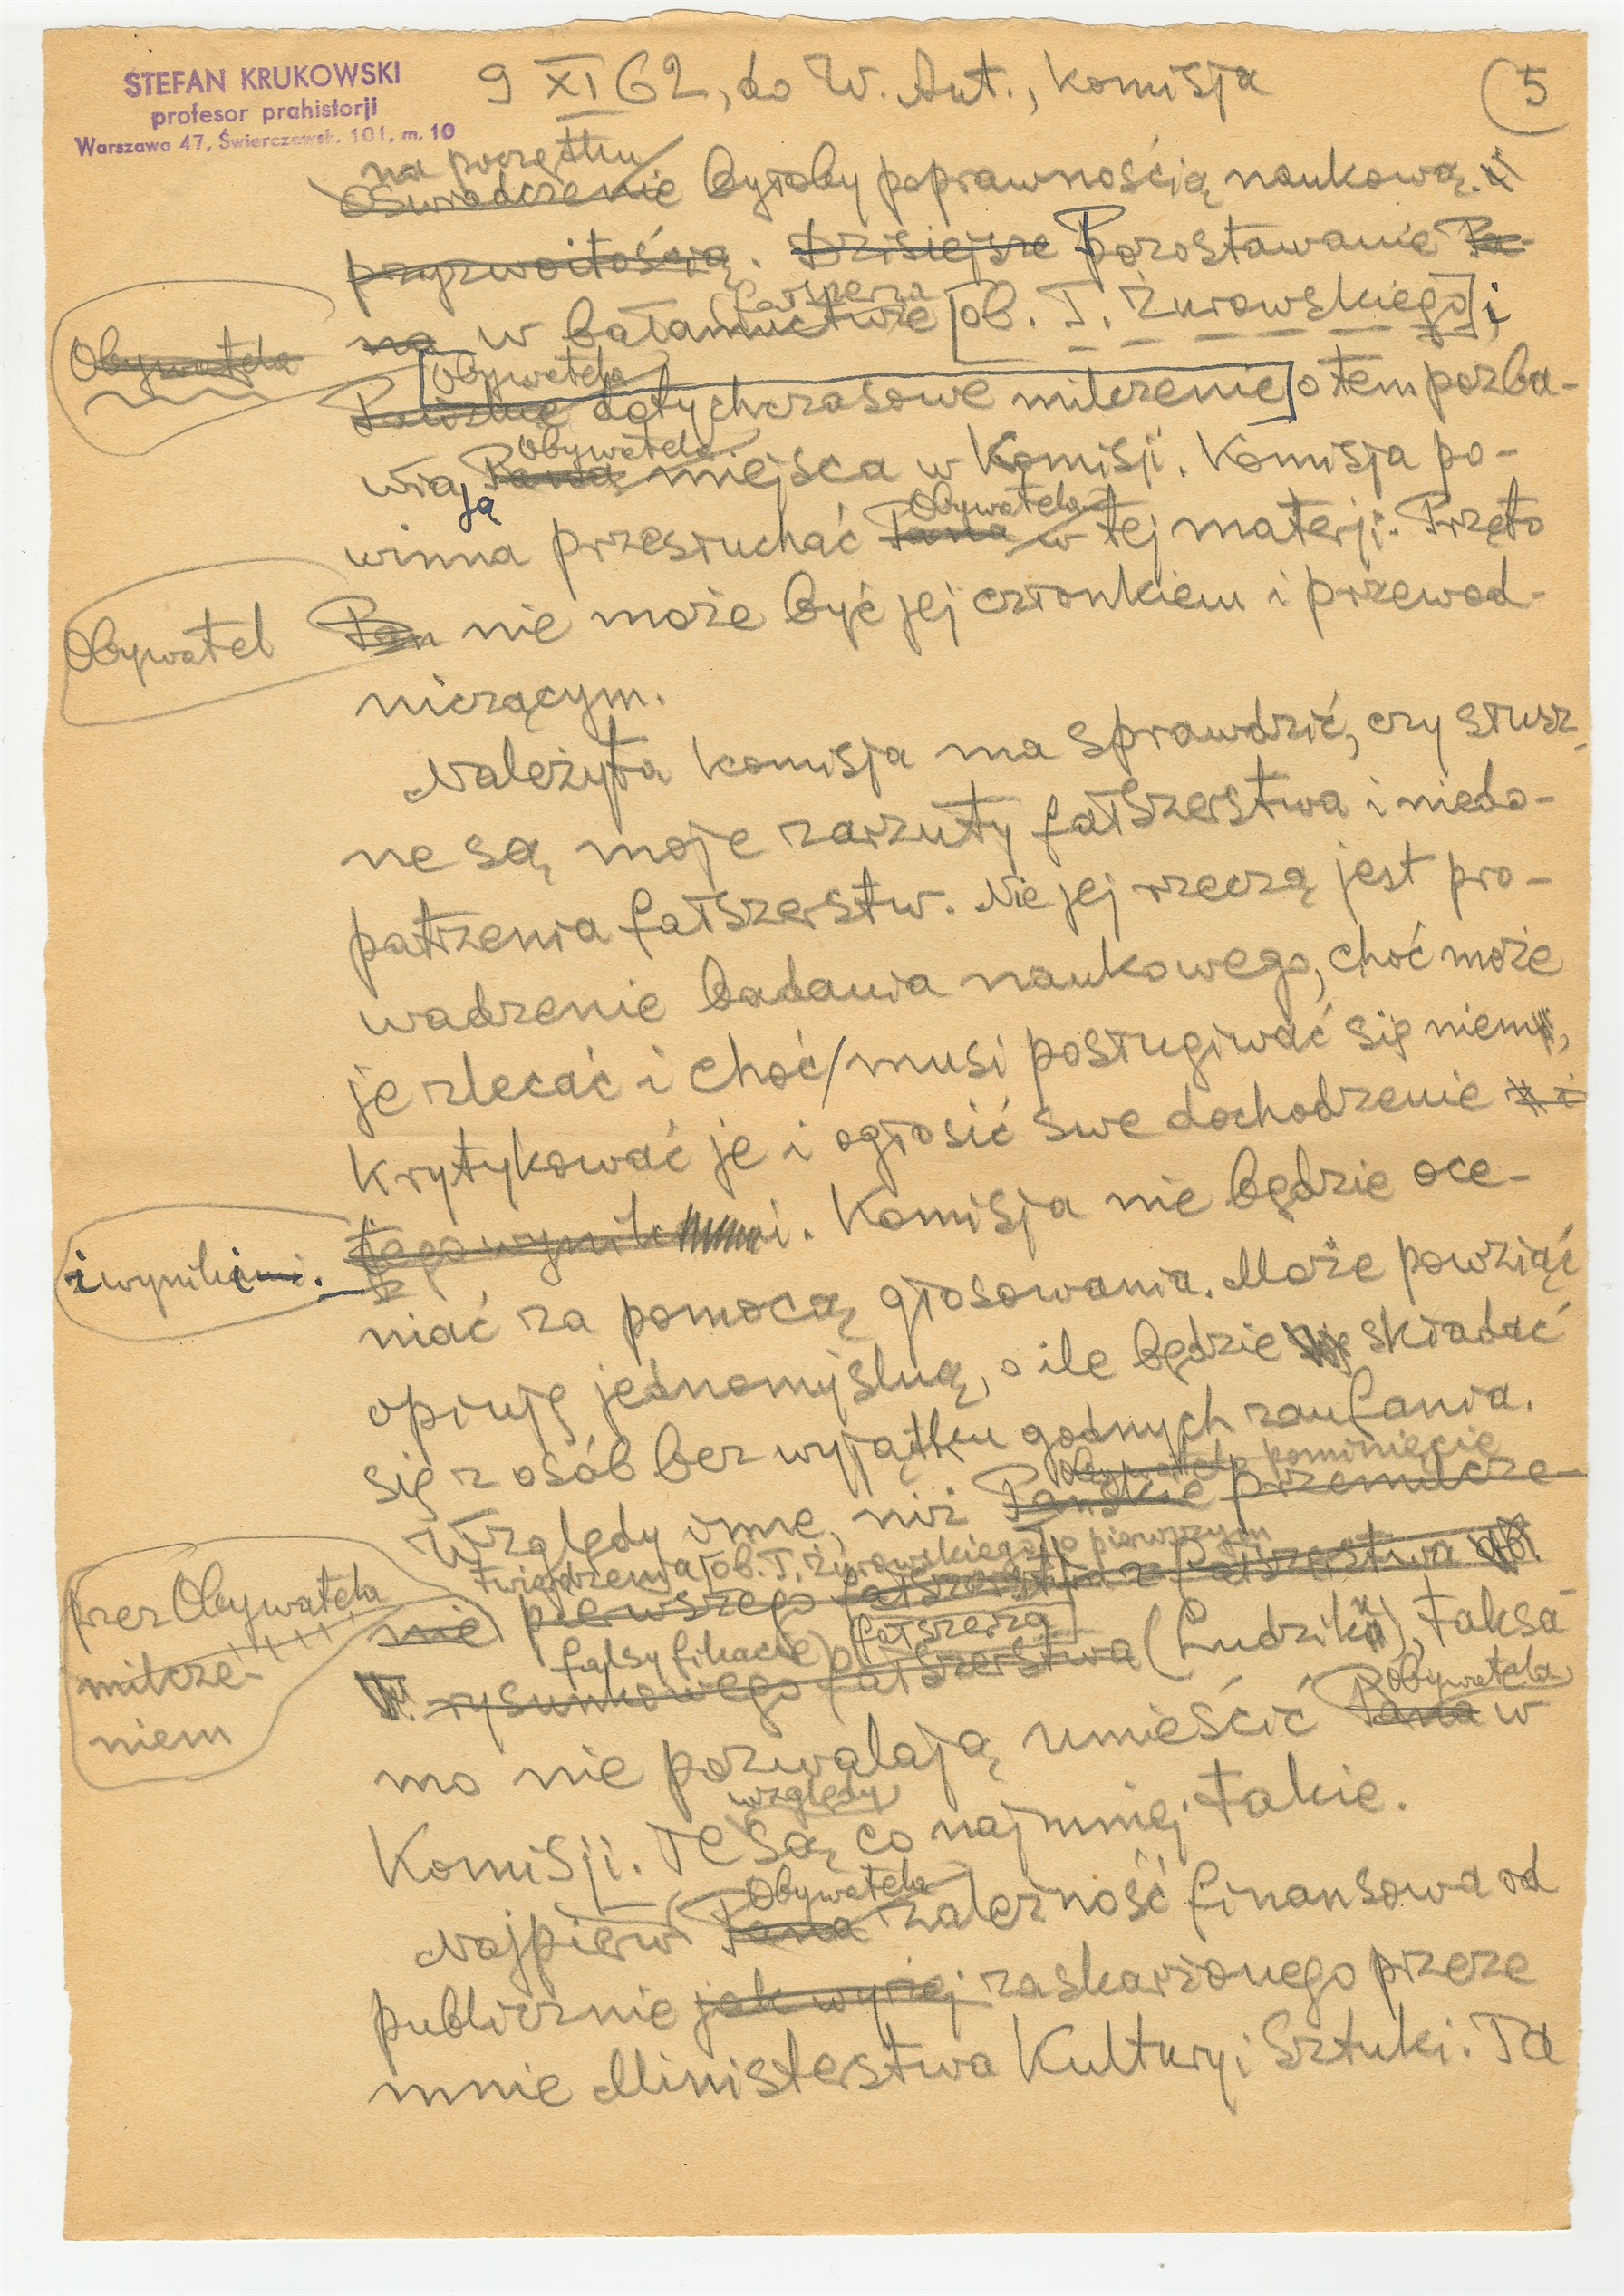 STEFAN KRUKOWSKI
profesor prahistorji
Warszawa 47, Świerczewsk. 101, m. 10
9 XI 62, do W. Ant., Komisja
5
na początku
Oświadczenie byłoby poprawnością naukową. i
przyzwoitością. Dzisiejsze Pozostawanie Pa-
fałszerza
na w bałamuctwie [ob. T. Żurowskiego] i
Obywatela
Obywatela
dotychczasowe milczenie o tem pozba-
Obywatela
wiają Pana miejsca w Komisji. Komisja po-
Obywatela
winna przesłuchać Pana w tej materji. Przęto
Obywatel
Pan nie może być jej członkiem i przewod-
niczącym.
Należyta komisja ma sprawdzić, czy słusz-
ne są moje zarzuty fałszerstwa i niedo-
patrzenia fałszerstw. Nie jej rzeczą jest pro-
wadzenie badania naukowego, choć może
je zlecać i choć/musi posługiwać się niem,
krytykować je i ogłosić swe dochodzenie i
i wyniki.
jego wynik i. Komisja nie będzie oce-
niać za pomocą głosowania. Może powziąć
opinję jednomyślną, o ile będzie składać
się z osób bez wyjątku godnych zaufania.
Obywatela pominięcie
Względy inne, niż Pańskie przemilcze-
twierdzenia [ob. T. Żurowskiego] o pierwszym
przez Obywatela
milcze-
niem
nie pierwszego fałszerstwa z fałszerstwa
falsyfikacie fałszerza
rysunkowego fałszerstwa (Ludzik), taksa-
Obywatela
mo nie pozwalają umieścić Pana w
względy
Komisji. Te są co najmniej takie.
Obywatela
Najpierw Pana zależność finansowa od
publicznie jak wyżej zaskarżonego przeze
mnie Ministerstwa Kultury i Sztuki. Ta